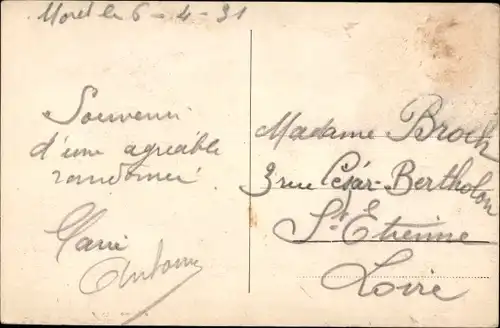 Moret le 6-4-31
Souvenir
d'une agréable
randonnée
Marie
Antoine
Madame Broch
3 rue César-Bertholon
St Etienne
Loire